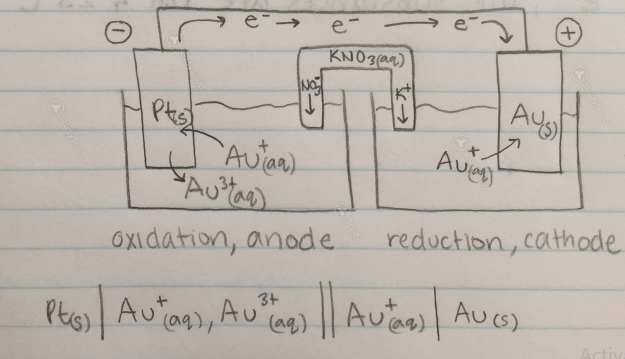 e⁻ → e⁻ → e⁻
⊖ ⊕
KNO₃(aq)
NO₃⁻ K⁺
Pt(s) Au(s)
Au⁺(aq) Au⁺(aq)
Au³⁺(aq)
oxidation, anode reduction, cathode
Pt(s) | Au⁺(aq), Au³⁺(aq) || Au⁺(aq) | Au(s)
Activ